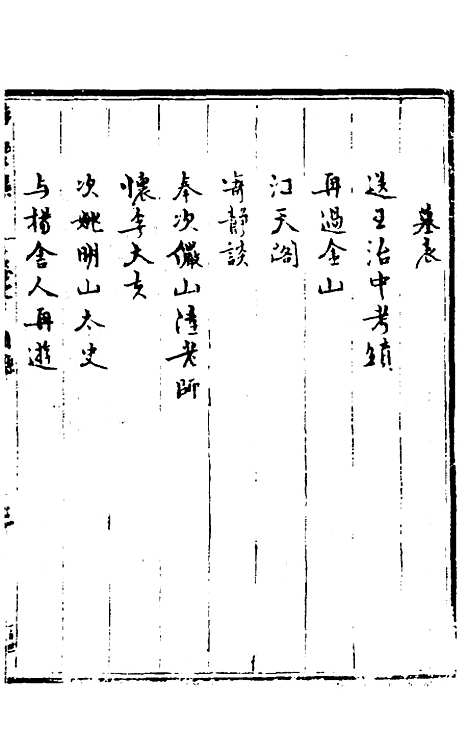 墓表
送王治中考績
再過金山
江天閣
海靜談
奉次儼山陸老師
懷李大亥
次姚明山太史
与楊舍人再遊